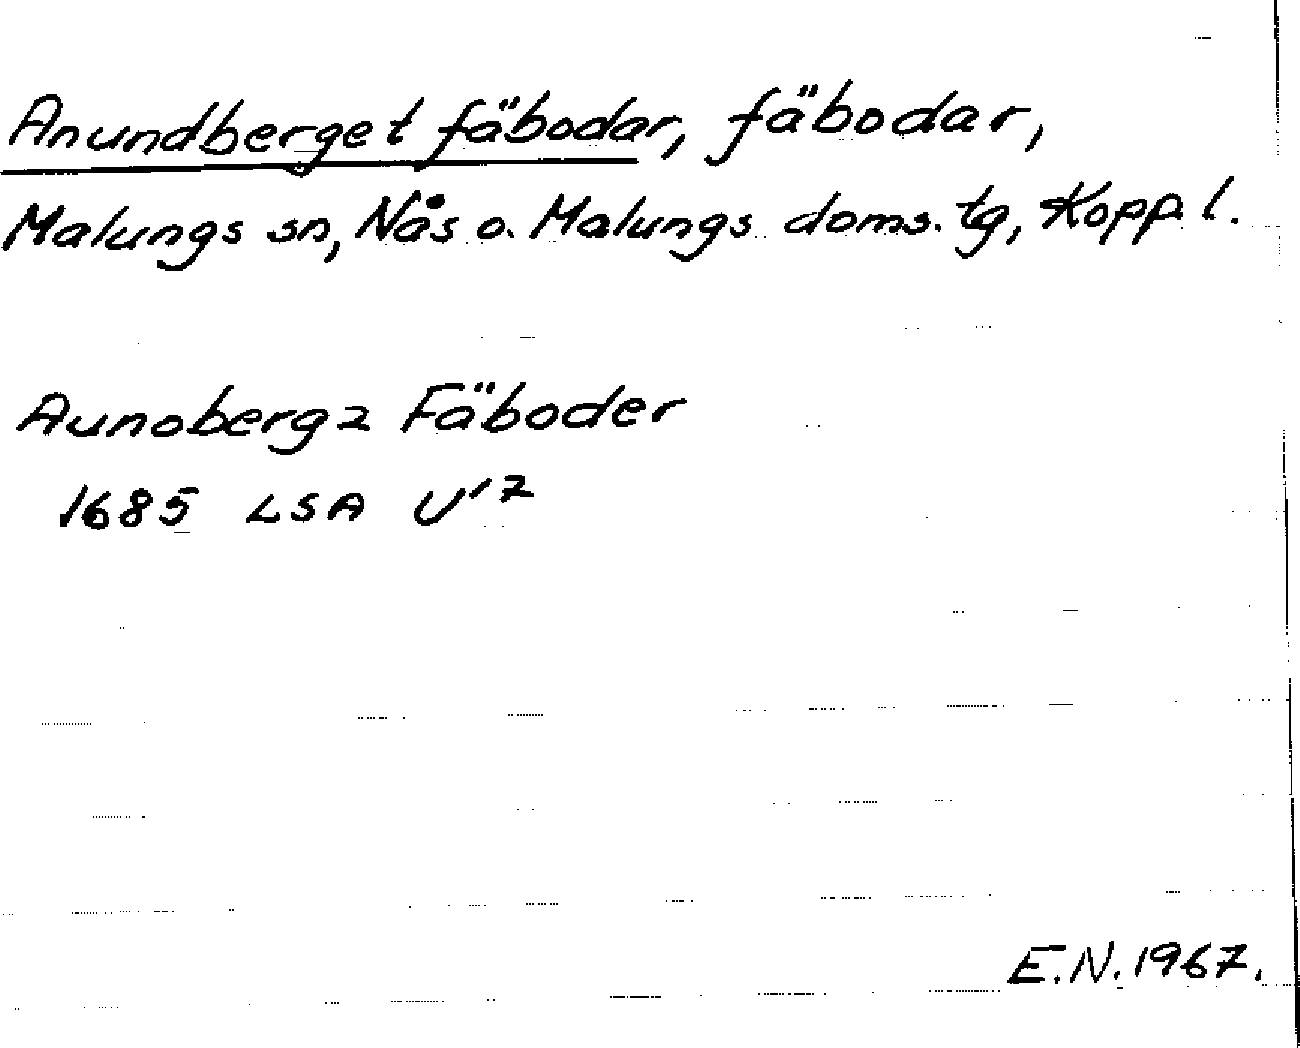 Anundberget fäbodar, fäbodar,
Malungs sn, Nås o. Malungs doms. tg, Kopp. l.
Aunoberg z Fäboder
1685 LSA U'7
E.N. 1967.